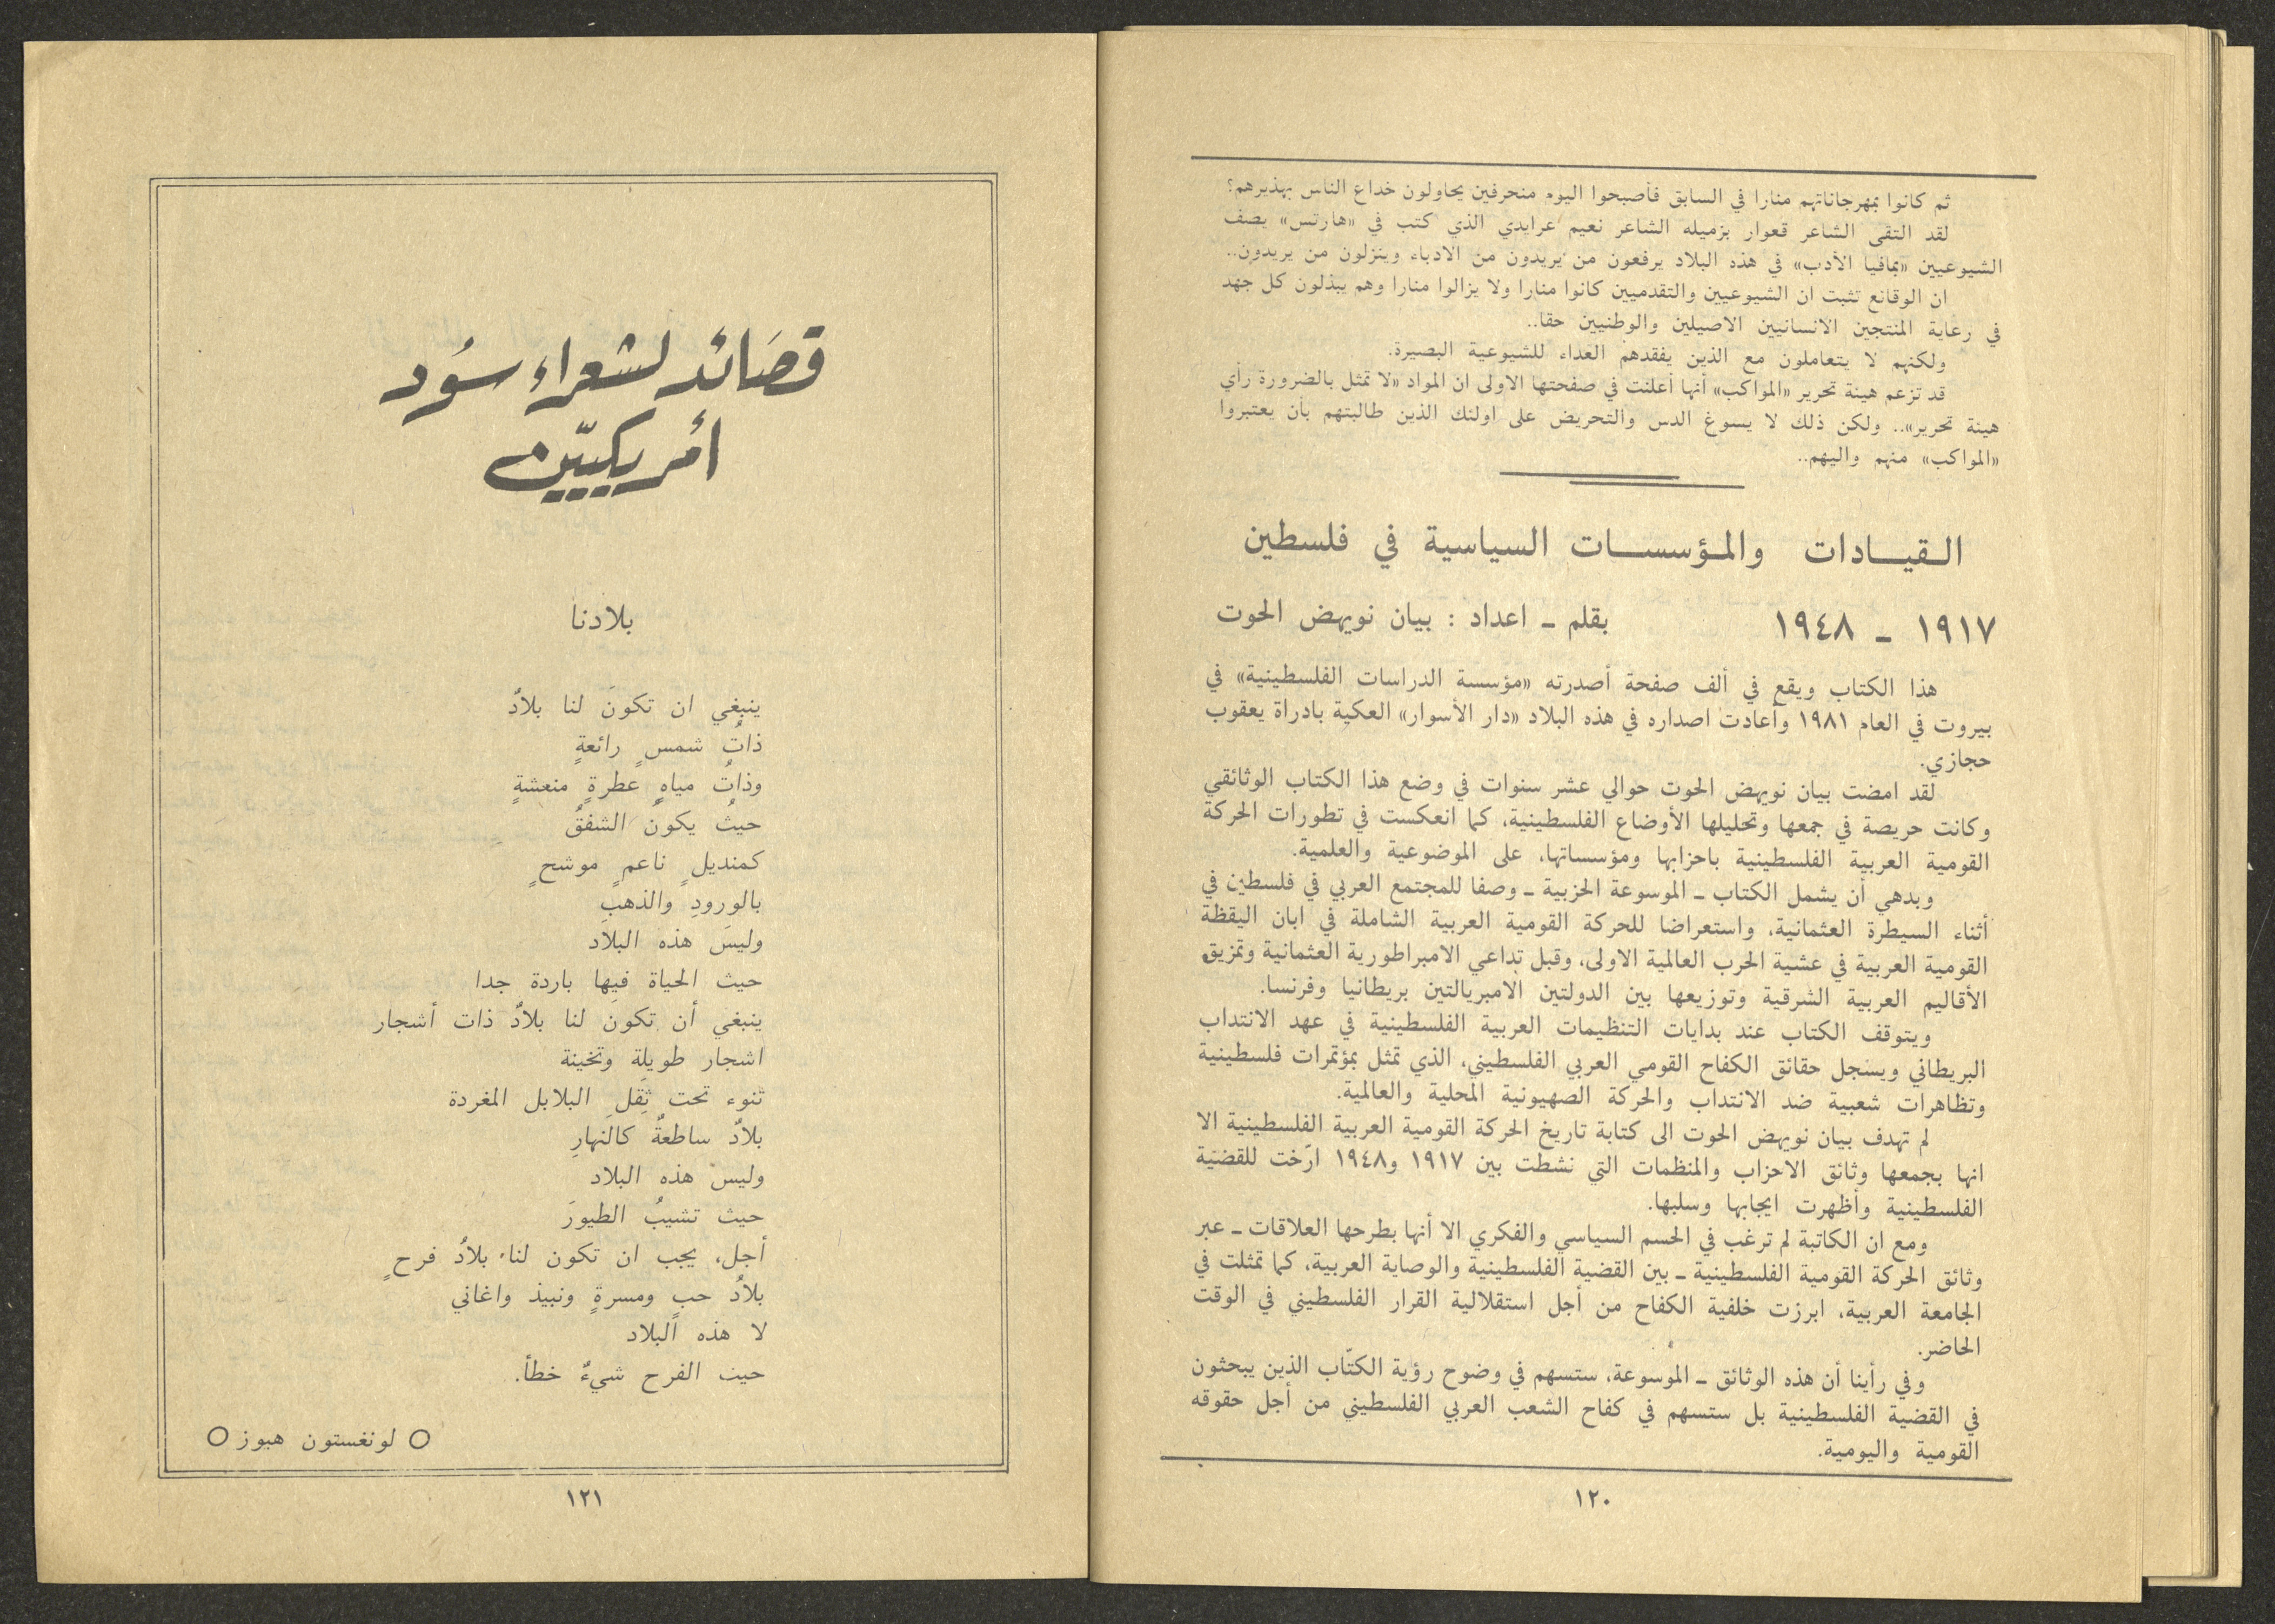 ثم كانوا بمهرجاناتهم منارا في السابق فأصبحوا اليوم منحرفين يحاولون خداع الناس بهذيرهم؟
لقد التقى الشاعر قعوار بزميله الشاعر نعيم عرايدي الذي كتب في «هارتس» يصف
الشيوعيين «بمافيا الأدب» في هذه البلاد يرفعون من يريدون من الادباء وينزلون من يريدون..
ان الوقائع تثبت ان الشيوعيين والتقدميين كانوا منارا ولا يزالوا منارا وهم يبذلون كل جهد
في رعاية المنتجين الانسانيين الاصيلين والوطنيين حقا..
ولكنهم لا يتعاملون مع الذين يفقدهم العداء للشيوعية البصيرة.
قد تزعم هيئة تحرير «المواكب» أنها أعلنت في صفحتها الاولى ان المواد «لا تمثل بالضرورة رأي
هيئة تحرير».. ولكن ذلك لا يسوغ الدس والتحريض على اولئك الذين طالبتهم بأن يعتبروا
«المواكب» منهم واليهم..
القيادات والمؤسسات السياسية في فلسطين
١٩١٧ - ١٩٤٨
بقلم - اعداد : بيان نويهض الحوت
هذا الكتاب ويقع في ألف صفحة أصدرته «مؤسسة الدراسات الفلسطينية» في
بيروت في العام ١٩٨١ وأعادت اصداره في هذه البلاد «دار الأسوار» العكية بادراة يعقوب
حجازي.
لقد امضت بيان نويهض الحوت حوالي عشر سنوات في وضع هذا الكتاب الوثائقي
وكانت حريصة في جمعها وتحليلها الأوضاع الفلسطينية، كما انعكست في تطورات الحركة
القومية العربية الفلسطينية باحزابها ومؤسساتها، على الموضوعية والعلمية.
وبدهي أن يشمل الكتاب - الموسوعة الحزبية - وصفا للمجتمع العربي في فلسطين في
أثناء السيطرة العثمانية، واستعراضا للحركة القومية العربية الشاملة في ابان اليقظة
القومية العربية في عشية الحرب العالمية الاولى، وقبل تداعي الامبراطورية العثمانية وتمزيق
الأقاليم العربية الشرقية وتوزيعها بين الدولتين الامبريالتين بريطانيا وفرنسا.
ويتوقف الكتاب عند بدايات التنظيمات العربية الفلسطينية في عهد الانتداب
البريطاني ويسجل حقائق الكفاح القومي العربي الفلسطيني، الذي تمثل بمؤتمرات فلسطينية
وتظاهرات شعبية ضد الانتداب والحركة الصهيونية المحلية والعالمية.
لم تهدف بيان نويهض الحوت الى كتابة تاريخ الحركة القومية العربية الفلسطينية الا
انها بجمعها وثائق الاحزاب والمنظمات التي نشطت بين ١٩١٧ و١٩٤٨ ارّخت للقضية
الفلسطينية وأظهرت ايجابها وسلبها.
ومع ان الكاتبة لم ترغب في الحسم السياسي والفكري الا أنها بطرحها العلاقات - عبر
وثائق الحركة القومية الفلسطينية - بين القضية الفلسطينية والوصاية العربية، كما تمثلت في
الجامعة العربية، ابرزت خلفية الكفاح من أجل استقلالية القرار الفلسطيني في الوقت
الحاضر.
وفي رأينا أن هذه الوثائق - الموسوعة، ستسهم في وضوح رؤية الكتّاب الذين يبحثون
في القضية الفلسطينية بل ستسهم في كفاح الشعب العربي الفلسطيني من أجل حقوقه
القومية واليومية.
١٢٠
قصَائد لشعراء سُود
أمريكيّين
بلادنا
ينبغي ان تكونَ لنا بلادٌ
ذاتُ شمسٍ رائعةٍ
وذاتُ مياهٍ عطرةٍ منعشةٍ
حيثُ يكونُ الشفقُ
كمنديلٍ ناعمٍ موشحٍ
بالورودِ والذهبِ
وليسَ هذه البلاد
حيث الحياة فيها باردة جدا
ينبغي أن تكون لنا بلادٌ ذات أشجار
اشجار طويلة وتخينة
تنوء تحت ثِقَلِ البلابل المغردة
بلادٌ ساطعةٌ كالنهارِ
وليسَ هذه البلاد
حيث تشيبُ الطيورَ
أجل، يجب ان تكون لنا بلادُ فرحٍ
بلادُ حبٍ ومسرةٍ ونبيذ واغاني
لا هذه البلاد
حيث الفرح شيءٌ خطأ.
○ لونغستون هيوز ○
١٢١